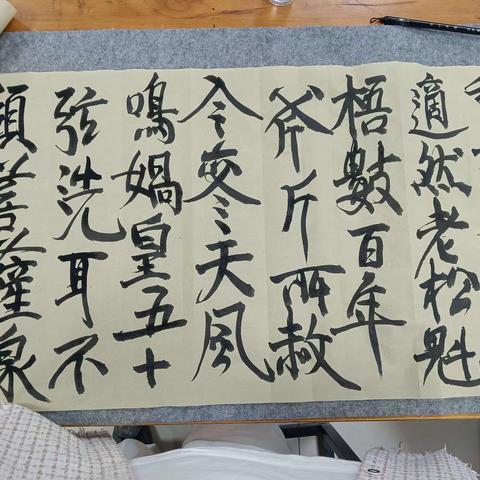 適然老松魁
梧數百年
斧斤所赦
今參天風
鳴媧皇五十
弦洗耳不
須菩薩泉